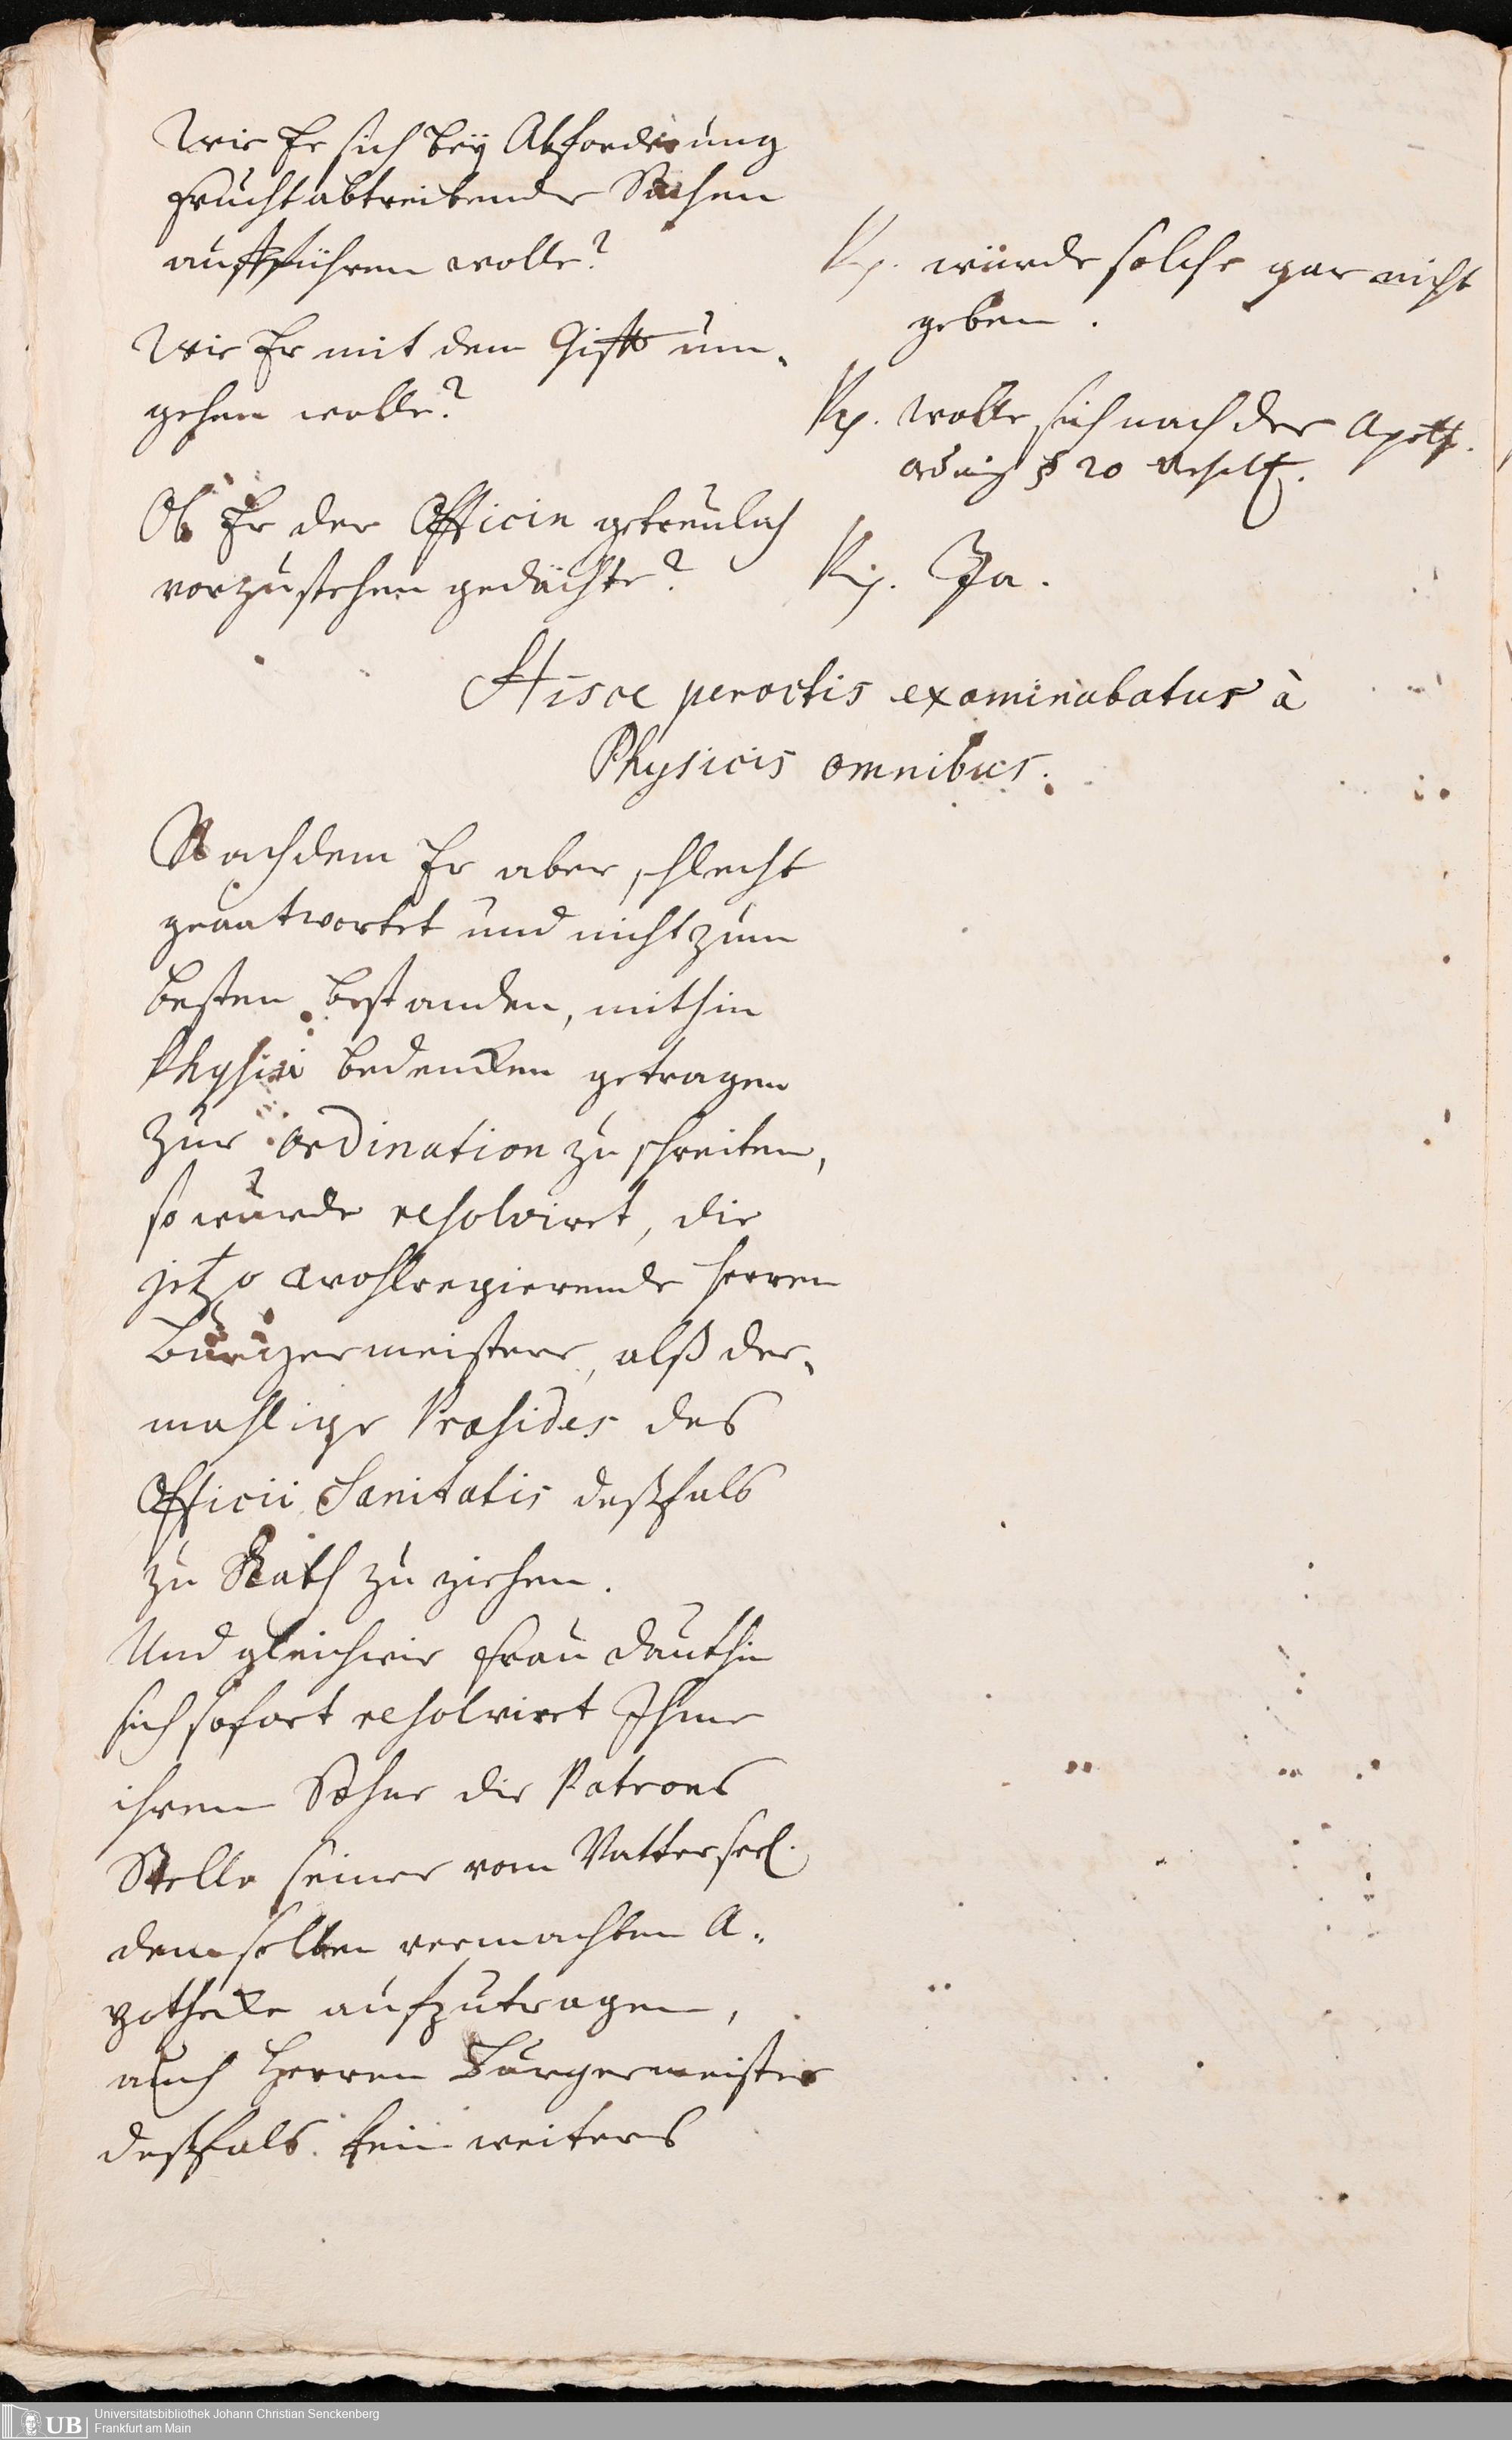 Wie Er sich bey Abforderung
fruchtabtreibende Sachen
auffführen wolle?
Rp. würde solche gar nicht
geben.
Wie Er mit dem Gifft um-
gehen wolle?
Rp. wolle sich nach der Apoth.
ordnung § 20
Ob Er der Officin getreulich
vorzustehen gedächte?
Rp. Ja.
Hisce peractis examinabatur à
Physicis omnibus.
Nachdem Er aber schlecht
geantwortet und nicht zum
besten bestanden, mithin
Physici bedencken getragen
zur ordination zu schreiten,
so wurde resolviret, die
jetzo wohlregierende Herren
Bürgermeistere, alß der-
mahlige Præsides des
Officii Sanitatis deßfals
zu Rath zu ziehen.
Und gleichwie Frau Dauthin
sich sofort resolviret Ihme
ihrem Sohne die Patrons
Stelle seiner vom Vatter seel.
demselben vermachten A-
potheke aufzutragen,
auch Herren Burgermeister
deßfals kein weiters
UB
Universitätsbibliothek Johann Christian Senckenberg
Frankfurt am Main